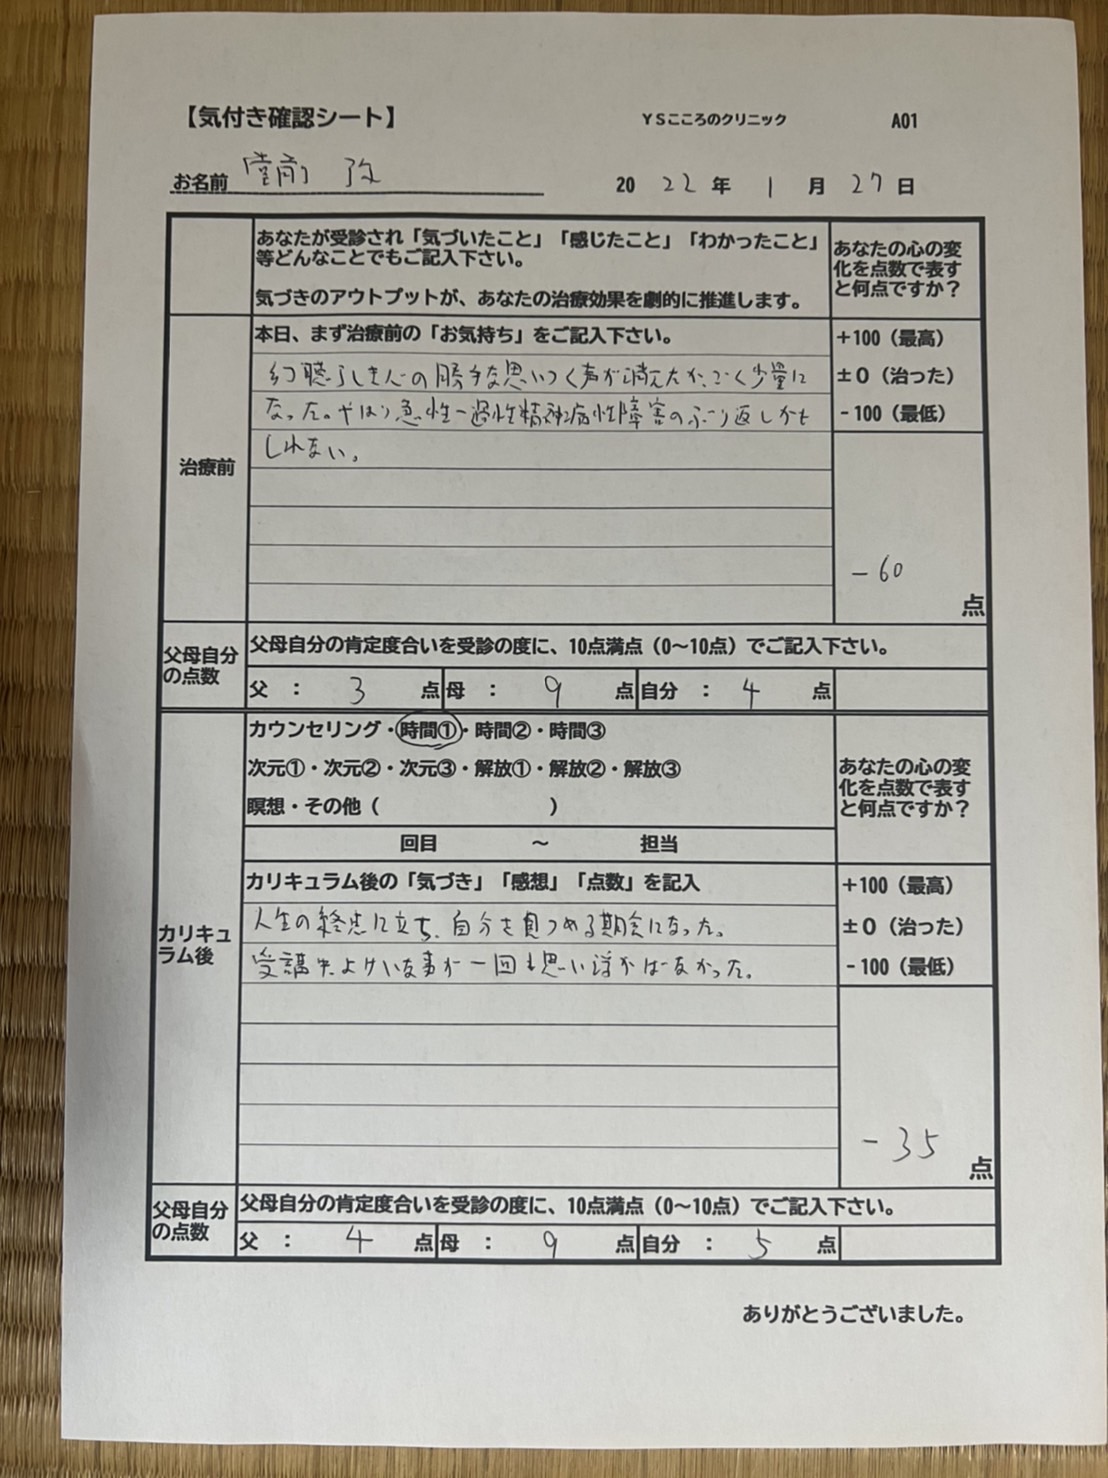 【気付き確認シート】
YSこころのクリニック
A01
お名前 堂前
20 22 年 1 月 27 日
あなたが受診され「気づいたこと」「感じたこと」「わかったこと」
等どんなことでもご記入下さい。
気づきのアウトプットが、あなたの治療効果を劇的に推進します。
あなたの心の変
化を点数で表す
と何点ですか?
治療前
本日、まず治療前の「お気持ち」をご記入下さい。
幻聴らしき人の勝手な思いつく声が消えたか、ごく少量に
なった。やはり急性一過性精神病性障害のぶり返しかも
しれない。
+100(最高)
±0(治った)
-100(最低)
-60
点
父母自分
の点数
父母自分の肯定度合いを受診の度に、10点満点(0〜10点)でご記入下さい。
父 : 3 点 母 : 9 点 自分 : 4 点
カリキュ
ラム後
カウンセリング・時間①・時間②・時間③
次元①・次元②・次元③・解放①・解放②・解放③
瞑想・その他( )
回目 〜 担当
あなたの心の変
化を点数で表す
と何点ですか?
カリキュラム後の「気づき」「感想」「点数」を記入
人生の終点に立ち、自分を見つめる期会になった。
受講中、よけいな事が一回も思い浮かばなかった。
+100(最高)
±0(治った)
-100(最低)
-35
点
父母自分
の点数
父母自分の肯定度合いを受診の度に、10点満点(0〜10点)でご記入下さい。
父 : 4 点 母 : 9 点 自分 : 5 点
ありがとうございました。